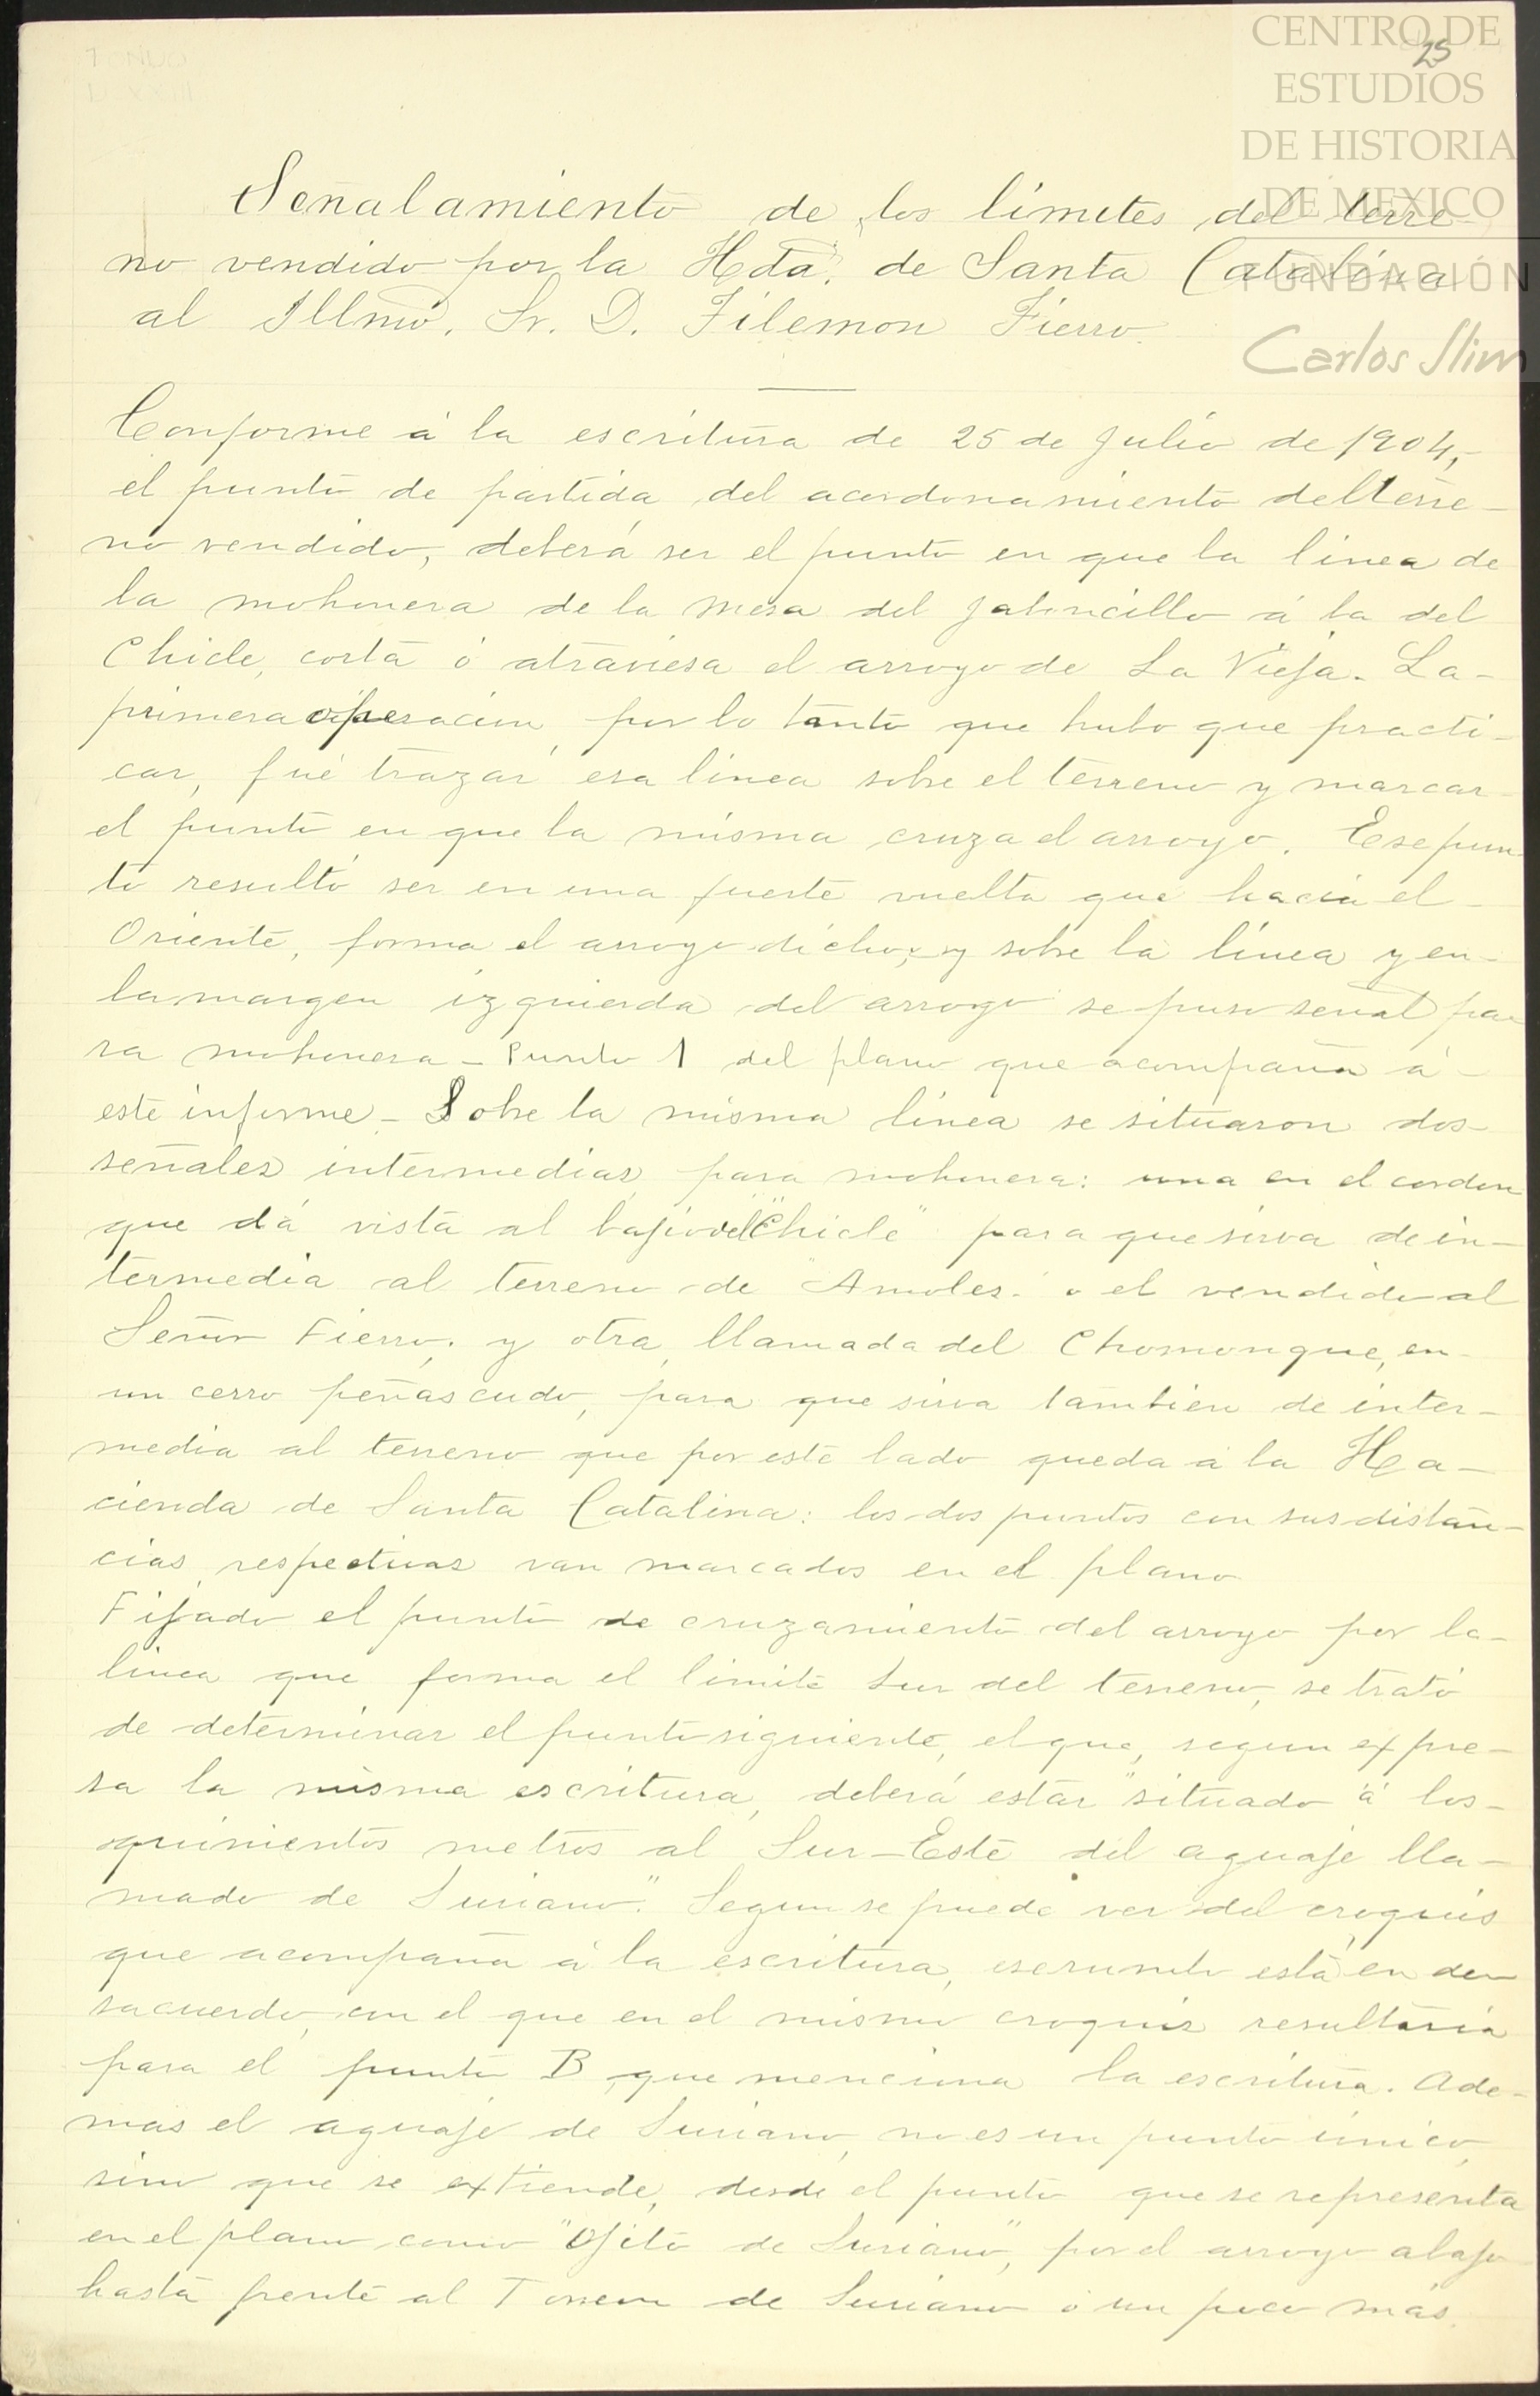 CENTRO DE
ESTUDIOS
DE HISTORIA
DE MEXICO
FUNDACIÓN
Carlos Slim
25
Señalamiento de los límites del terre-
no vendido por la Hda. de Santa Catalina
al Illmo. Sr. D. Filemon Fierro.
Conforme á la escritura de 25 de Julio de 1904,
el punto de partida del acordonamiento del terre-
no vendido, deberá ser el punto en que la linea de
la mohonera de la Mesa del Jaboncillo á la del
Chicle, corta ó atraviesa el arroyo de La Vieja. La-
primera operacion, por lo tanto que hubo que practi-
car, fué trazar esa linea sobre el terreno y marcar
el punto en que la misma cruza el arroyo. Ese pun
to resultó ser en una fuerte vuelta que hacia el-
Oriente, forma el arroyo dicho, y sobre la línea y en-
la margen izquierda del arroyo se puso señal pa
ra mohonera - Punto 1 del plano que acompaña á-
este informe - Sobre la misma linea se situaron dos-
señales intermedias para mohonera: una en el cordon
que dá vista al bajio del "Chicle" para que sirva de in-
termedia al terreno de "Amoles" o el vendido al
Señor Fierro, y otra llamada del Chomonque, en-
un cerro peñascudo, para que sirva tambien de inter-
media al terreno que por este lado queda á la Ha-
cienda de Santa Catalina: los dos puntos con sus distan-
cias respectivas van marcados en el plano
Fijado el punto de cruzamiento del arroyo por la-
linea que forma el limite Sur del terreno, se trató
de determinar el punto siguiente, el que, segun expre-
sa la misma escritura, deberá estar "situado á los-
quinientos metros al Sur-Este del aguaje lla-
mado de Suriano". Segun se puede ver del croquis
que acompaña á la escritura, ese rumbo está en de
sacuerdo, con el que en el mismo croquis resultaria
para el punto B que menciona la escritura. Ade-
mas el aguaje de Suriano, no es un punto único,
sino que se extiende, desde el punto que se representa
en el plano como "Ojito de Suriano", por el arroyo abajo
hasta frente al Torreon de Suriano ó un poco más.